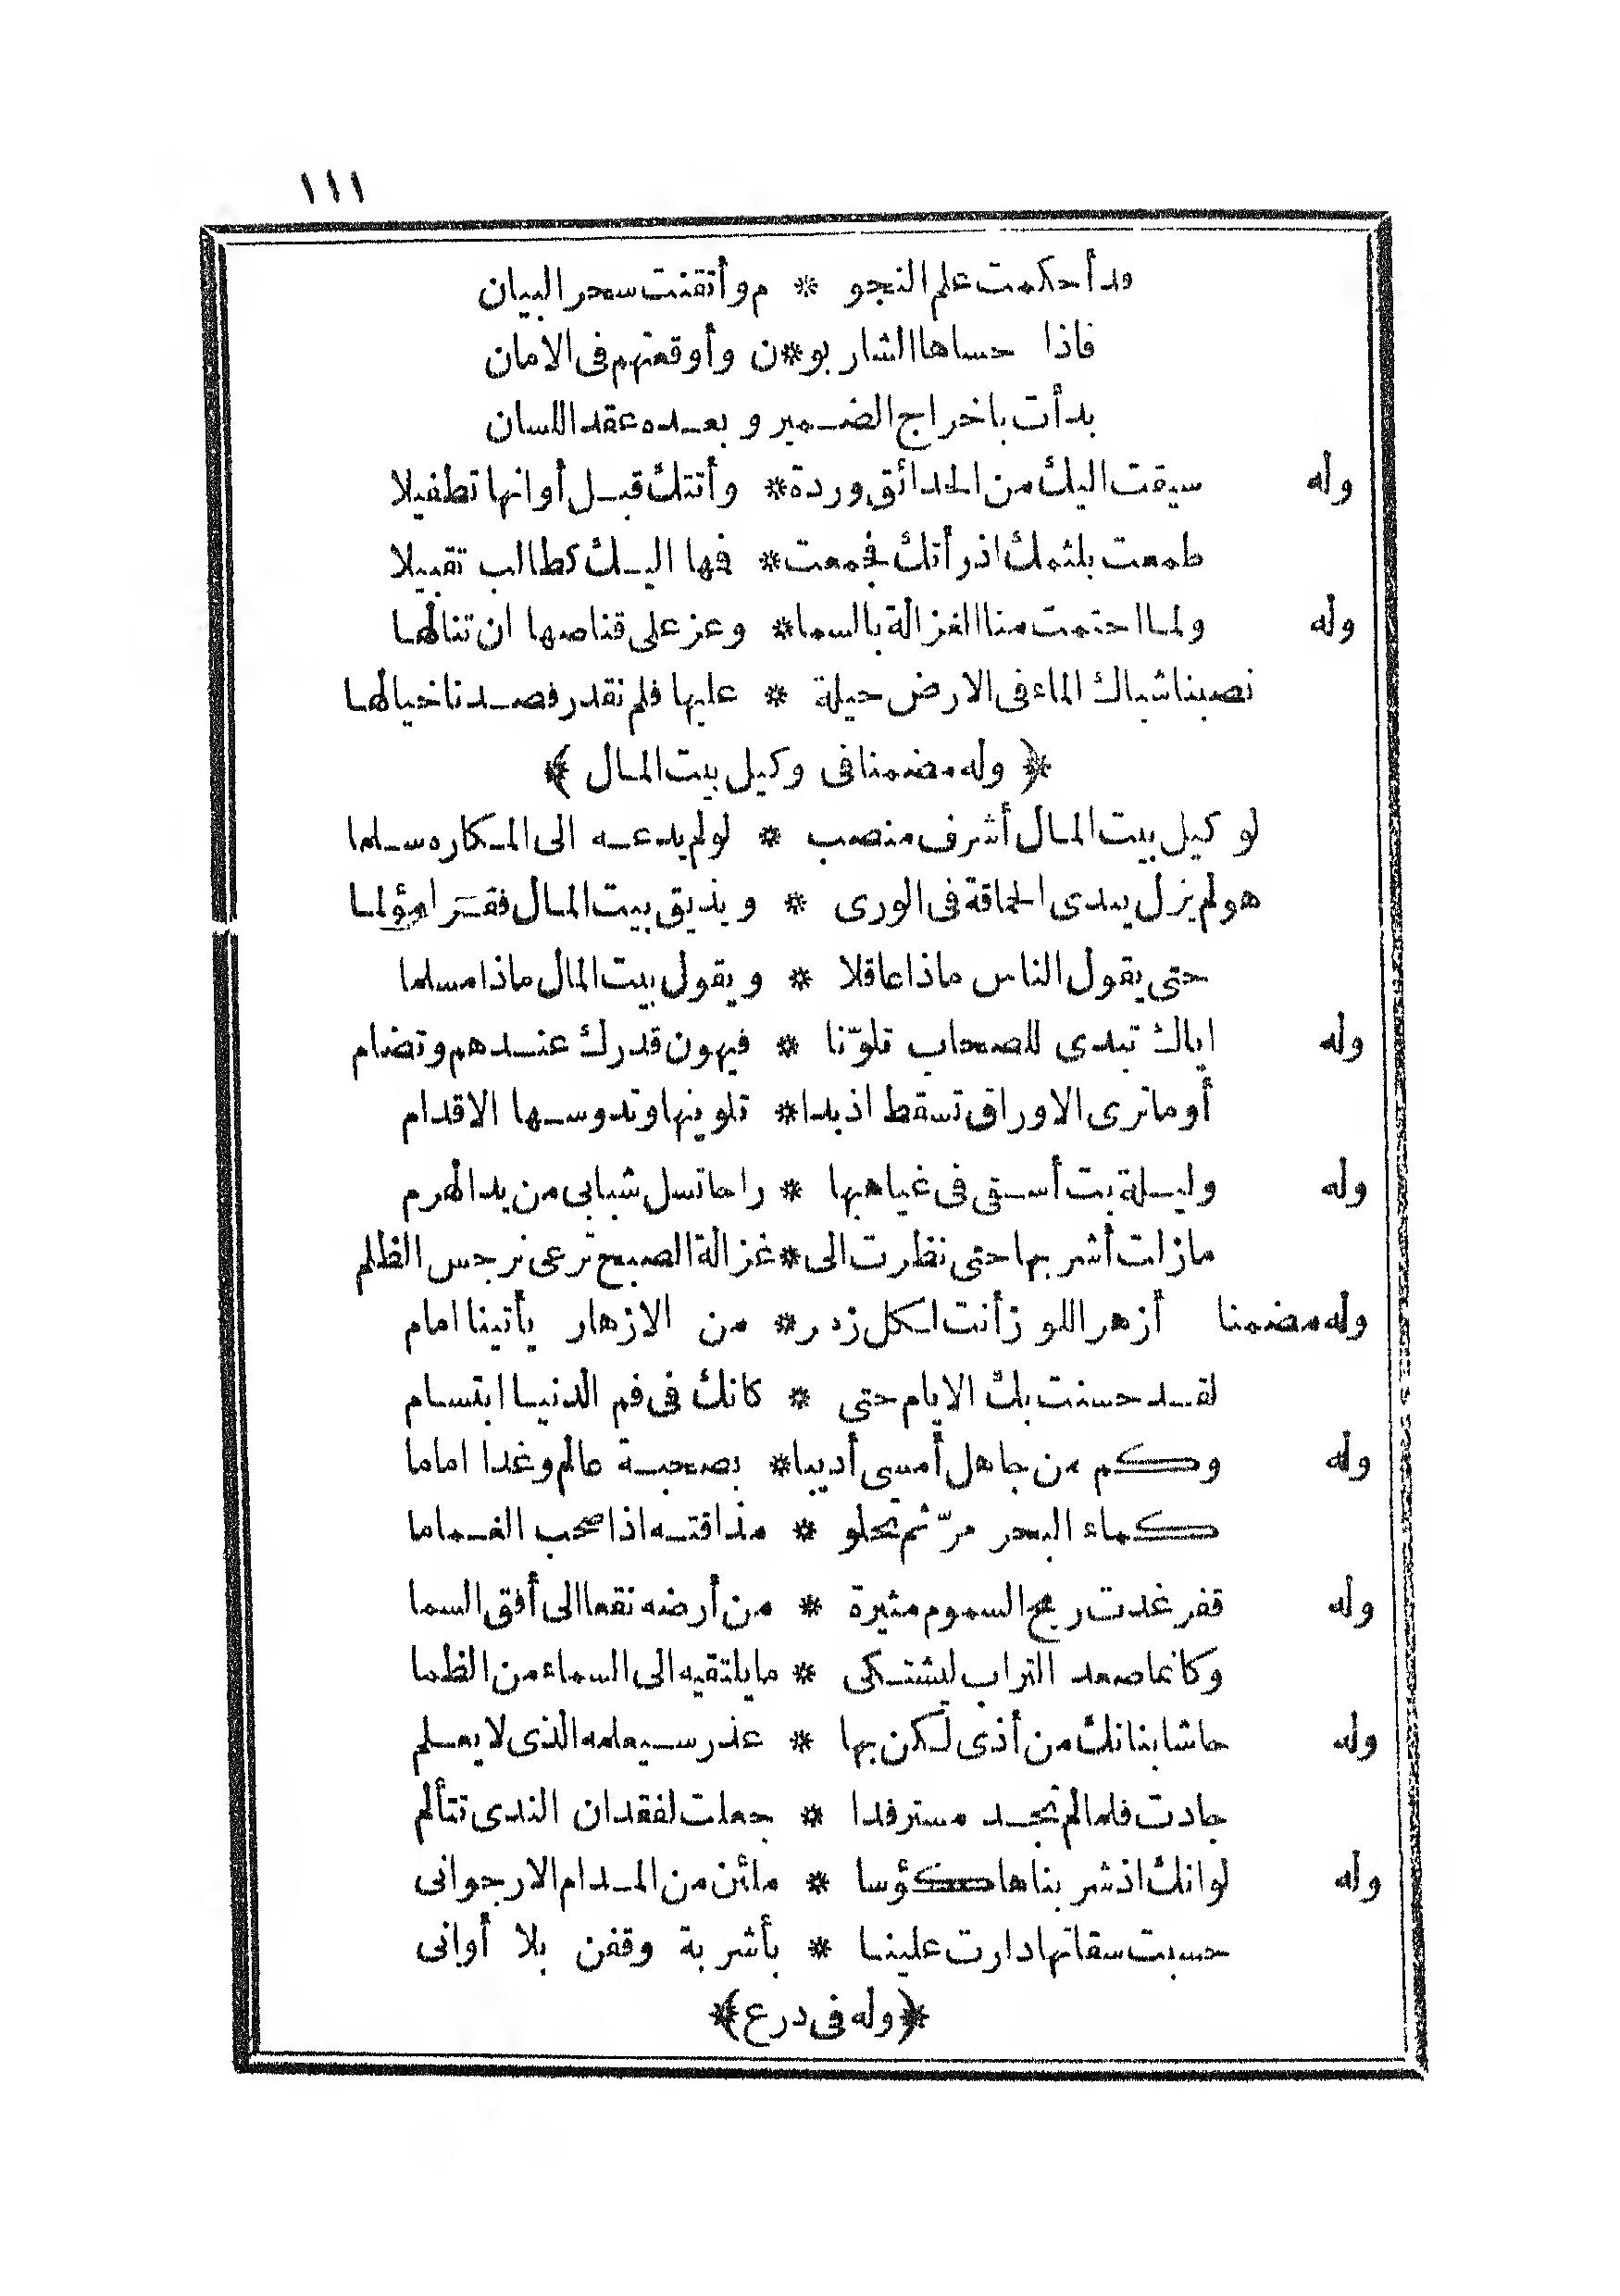 ١١١
قد أحكمت علم النجو * م وأتقنت سحر البيان
فاذا حساها الشاربو * ن وأوقعتهم فى الامان
بدأت باخراج الضمير و بعده عقد اللسان
وله سيقت اليك من الحدائق وردة * وأتتك قبل أوانها تطفيلا
طمعت بلثمك اذ رأتك فجمعت * فها اليك كطالب تقبيلا
وله ولما احتمت منا الغزالة بالسما * وعز على قناصها ان تنالها
نصبنا شباك الماء فى الارض حيلة * عليها فلم نقدر فصدنا خيالها
﴿ وله مضمنا فى وكيل بيت المال ﴾
لو كيل بيت المال أشرف منصب * لولم يدعه الى المكاره سلما
هو لم يزل يبدى الحماقة فى الورى * ويذيق بيت المال فقرا مؤلما
حتى يقول الناس ماذا عاقلا * ويقول بيت المال ماذا مسلما
وله اياك تبدى للصحاب تلوّنا * فيهون قدرك عندهم وتضام
أوما ترى الاوراق تسقط اذ بدا * تلوينها وتدوسها الاقدام
وله وليلة بت أسقى فى غياهبها * راحا تسل شبابى من يد الهرم
مازلت أشربها حتى نظرت الى * غزالة الصبح ترعى نرجس الظلم
وله مضمنا أزهر اللوز أنت لكل زهر * من الازهار يأتينا امام
لقد حسنت بك الايام حتى * كانك فى فم الدنيا ابتسام
وله وكم من جاهل أمسى أديبا * بصحبة عالم وغدا اماما
كماء البحر مرّ ثم تحلو * مذاقته اذا صحب الغماما
وله قفر غدت ريح السموم مثيرة * من أرضه نقعا الى أفق السما
وكانما صعد التراب ليشتكى * ما يلتقيه الى السماء من الظما
وله حاشا بنانك من أذى لكن بها * عذر سيعلمه الذى لا يعلم
جادت فلما لم تجد مسترفدا * جعلت لفقدان الندى تتألم
وله لوانك اذ شربناها كؤسا * ملئن من المدام الارجوانى
حسبت سقاتها دارت علينا * بأشربة وقفن بلا أوانى
﴿ وله فى درع ﴾